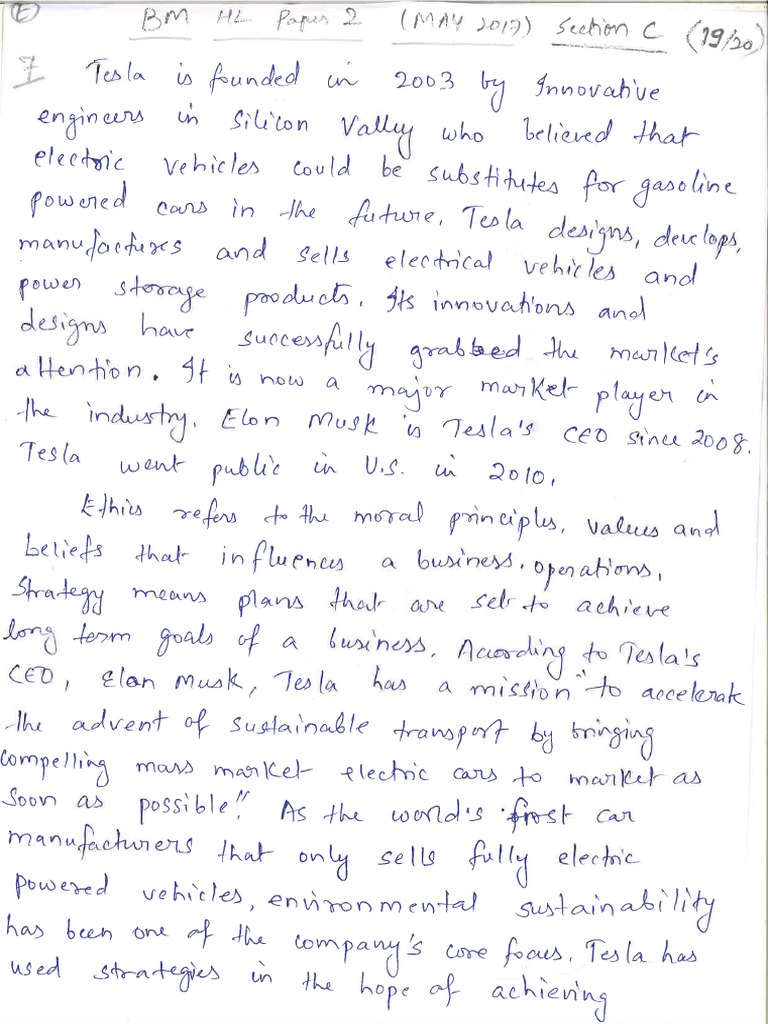 E BM HL Paper 2 (MAY 2017) Section C (19/20)
7 Tesla is founded in 2003 by Innovative
engineers in Silicon Valley who believed that
electric vehicles could be substitutes for gasoline
powered cars in the future. Tesla designs, develops,
manufactures and sells electrical vehicles and
power storage products. Its innovations and
designs have successfully grabbed the market's
attention. It is now a major market player in
the industry. Elon Musk is Tesla's CEO since 2008.
Tesla went public in U.S. in 2010.
Ethics refers to the moral principles, values and
beliefs that influences a business. operations,
Strategy means plans that are set to achieve
long term goals of a business. According to Tesla's
CEO, Elon Musk, Tesla has a mission "to accelerate
the advent of sustainable transport by bringing
compelling mass market electric cars to market as
soon as possible". As the world's first car
manufacturers that only sells fully electric
powered vehicles, environmental sustainability
has been one of the company's core focus. Tesla has
used strategies in the hope of achieving